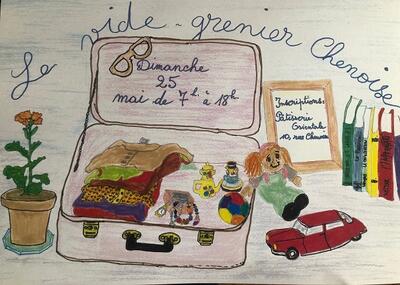 Le vide-grenier Chenoise
Dimanche
25
mai de 7h. à 18h
Inscriptions:
Pâtisserie
Orientale
10, rue